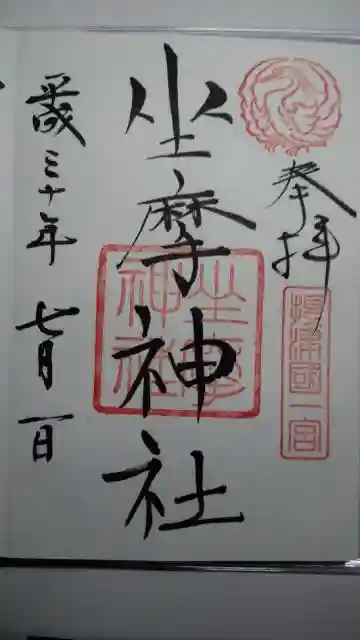 奉拝
摂津國一宮
坐摩神社
坐摩
神社
平成三十年 七月一日